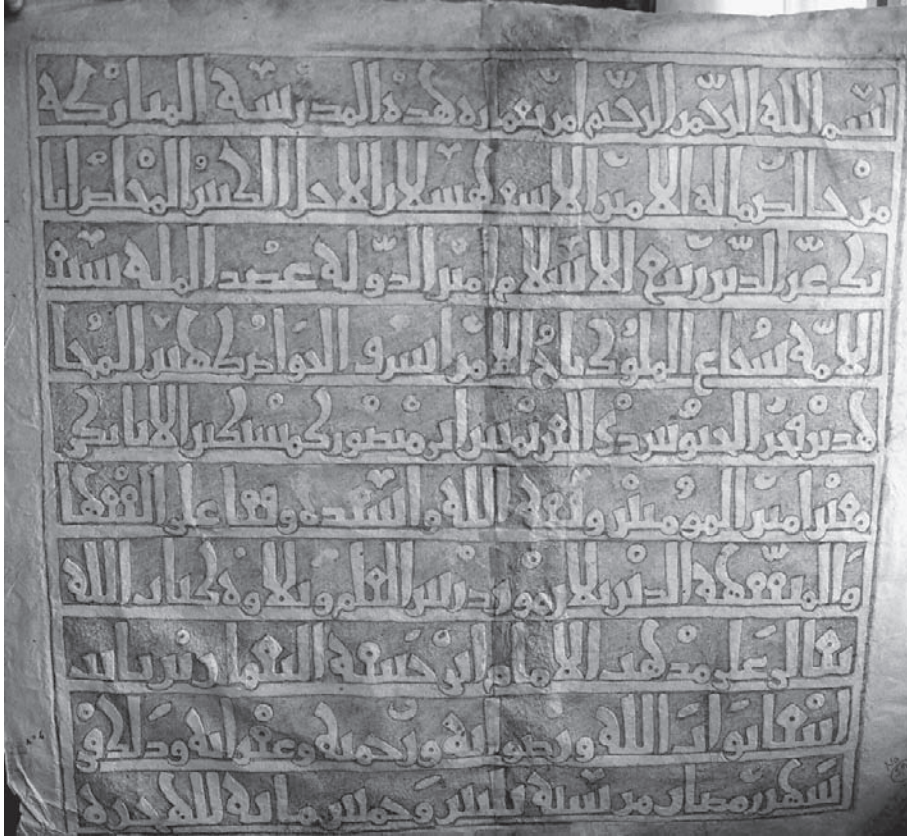 بسم الله الرحمن الرحيم امر بعماره هذه المدرسة المباركه
من خالص ماله الامير الاسفهسلار الاجل الكبير المخلص اتا
بك عز الدين ربيع الاسلام امين الدوله عضد المله سيف
الامه شجاع الملوك تاج الامرا شرف الخواص ظهير المجا
هدين فخر الجيوش ذي العزيمتين منصور كمشتكين الاتابكي
معين امير المومنين وفقه الله واسعده وقفا على الفقها
والمتفقهه الذين يلازمون درس العلم وتلاوه كتاب الله
تعالى على مذهب الامام ابي حنيفه النعمان بن ثابت
ابتغا ثواب الله ورضوانه ورحمته وغفرانه وذلك في
شهر رمضان من سنة ثلثين وخمس مايه للهجره